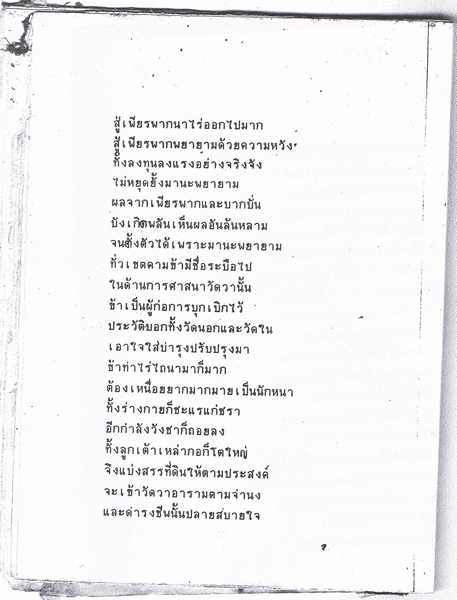 สู้เพียรพากนาไร่ออกไปมาก
สู้เพียรพากพยายามด้วยความหวัง
ทั้งลงทุนลงแรงอย่างจริงจัง
ไม่หยุดยั้งมานะพยายาม
ผลจากเพียรพากและบากบั่น
บังเกิดพลันเห็นผลอันล้นหลาม
จนตั้งตัวได้เพราะมานะพยายาม
ทั่วเขตคามข้ามีชื่อระบือไป
ในด้านการศาสนาวัดวานั้น
ข้าเป็นผู้ก่อการบุกเบิกไว้
ประวัติบอกทั้งวัดนอกและวัดใน
เอาใจใส่บำรุงปรับปรุงมา
ข้าทำไร่ไถนามาก็มาก
ต้องเหนื่อยยากมากมายเป็นนักหนา
ทั้งร่างกายก็ชะแรแก่ชรา
อีกกำลังวังชาก็ถอยลง
ทั้งลูกเต้าเหล่ากอก็โตใหญ่
จึงแบ่งสรรที่ดินให้ตามประสงค์
จะเข้าวัดวาอารามตามจำนง
และดำรงชีพนั้นปลายสบายใจ